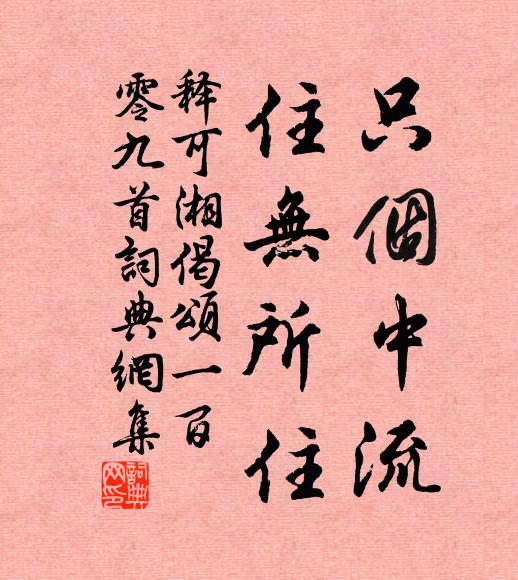 只個中流
住無所住
释可湘偈頌一百
零九首詞典網集
詞典
网印